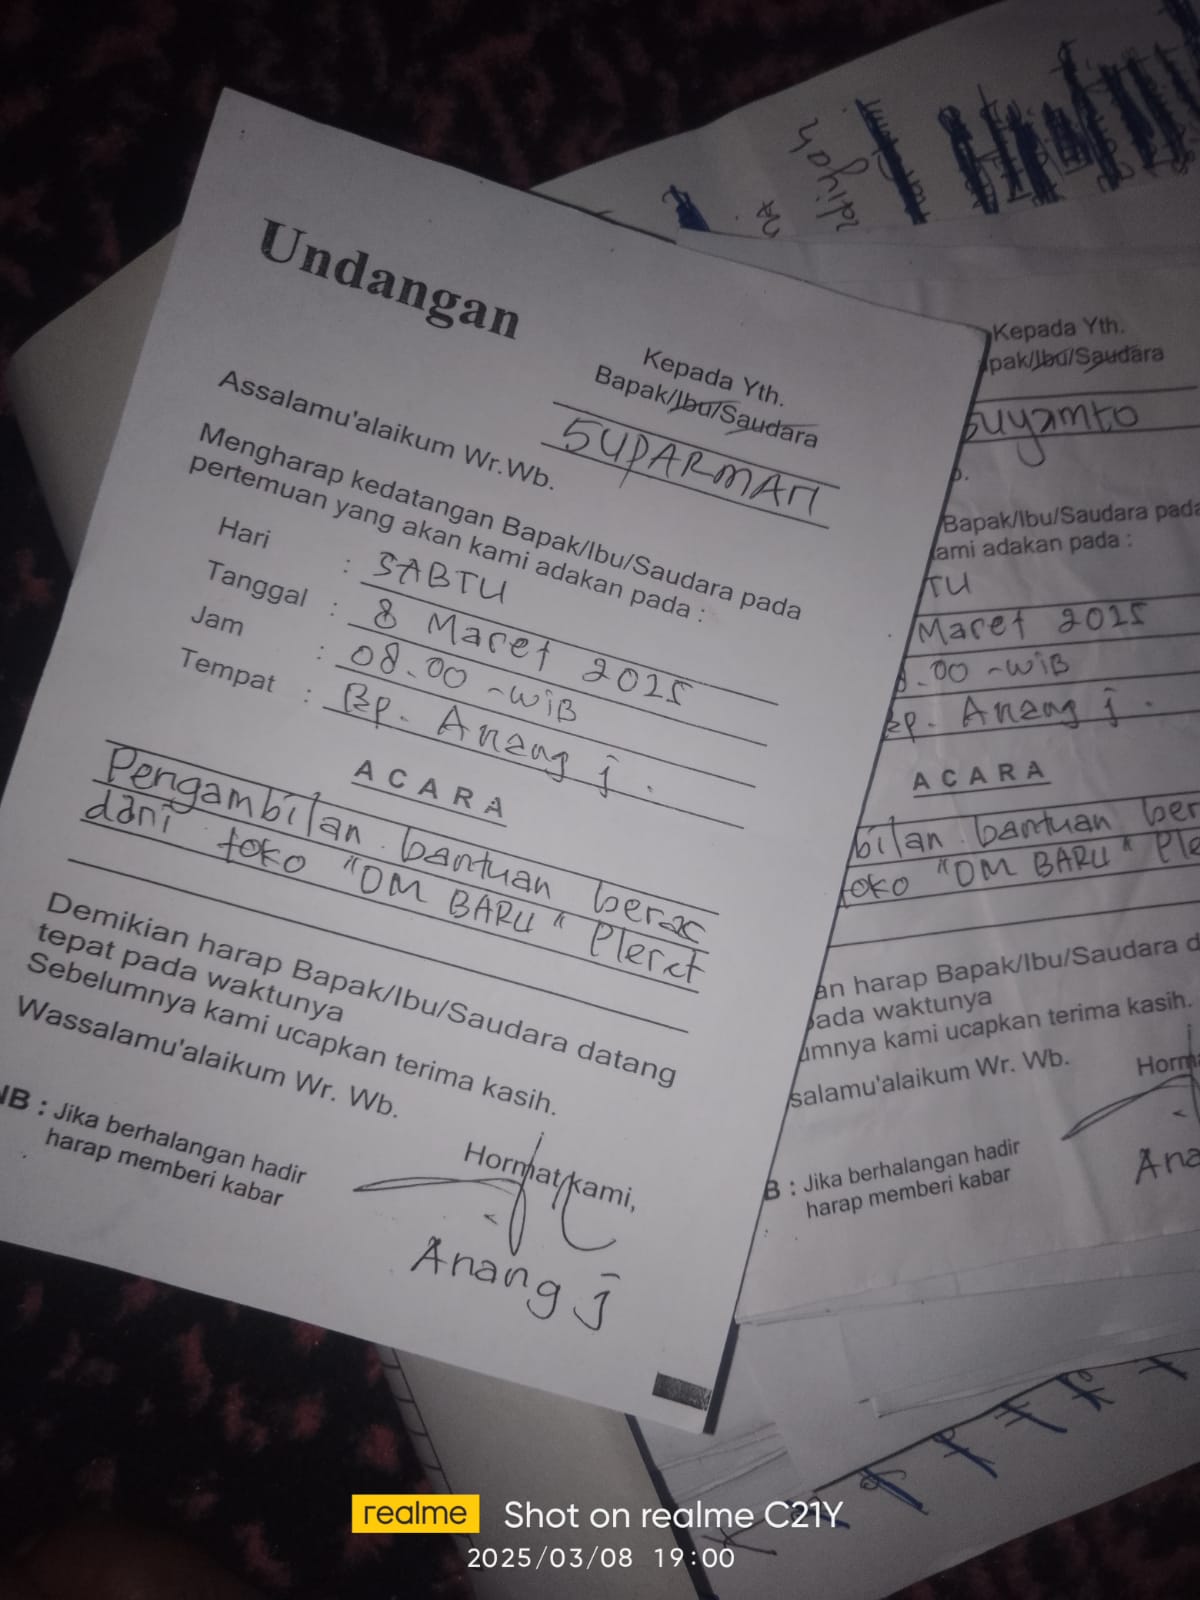 Undangan
Kepada Yth.
Bapak/Ibu/Saudara
SUPARMAN
Assalamu'alaikum Wr.Wb.
Mengharap kedatangan Bapak/Ibu/Saudara pada
pertemuan yang akan kami adakan pada :
Hari : SABTU
Tanggal : 8 Maret 2025
Jam : 08.00 - WIB
Tempat : Bp. Anang j.
ACARA
Pengambilan bantuan beras
dari toko "DM BARU" Pleret
Demikian harap Bapak/Ibu/Saudara datang
tepat pada waktunya
Sebelumnya kami ucapkan terima kasih.
Wassalamu'alaikum Wr. Wb.
NB : Jika berhalangan hadir
harap memberi kabar
Hormat kami,
Anang j
Kepada Yth.
pak/Ibu/Saudara
Suyamto
p.
Bapak/Ibu/Saudara pada
ami adakan pada :
TU
Maret 2025
.00 - WIB
Bp. Anang j.
ACARA
bilan bantuan ber
toko "DM BARU" Ple
an harap Bapak/Ibu/Saudara d
pada waktunya
umnya kami ucapkan terima kasih.
salamu'alaikum Wr. Wb.
Horm
B : Jika berhalangan hadir
harap memberi kabar
Ana
realme Shot on realme C21Y
2025/03/08 19:00